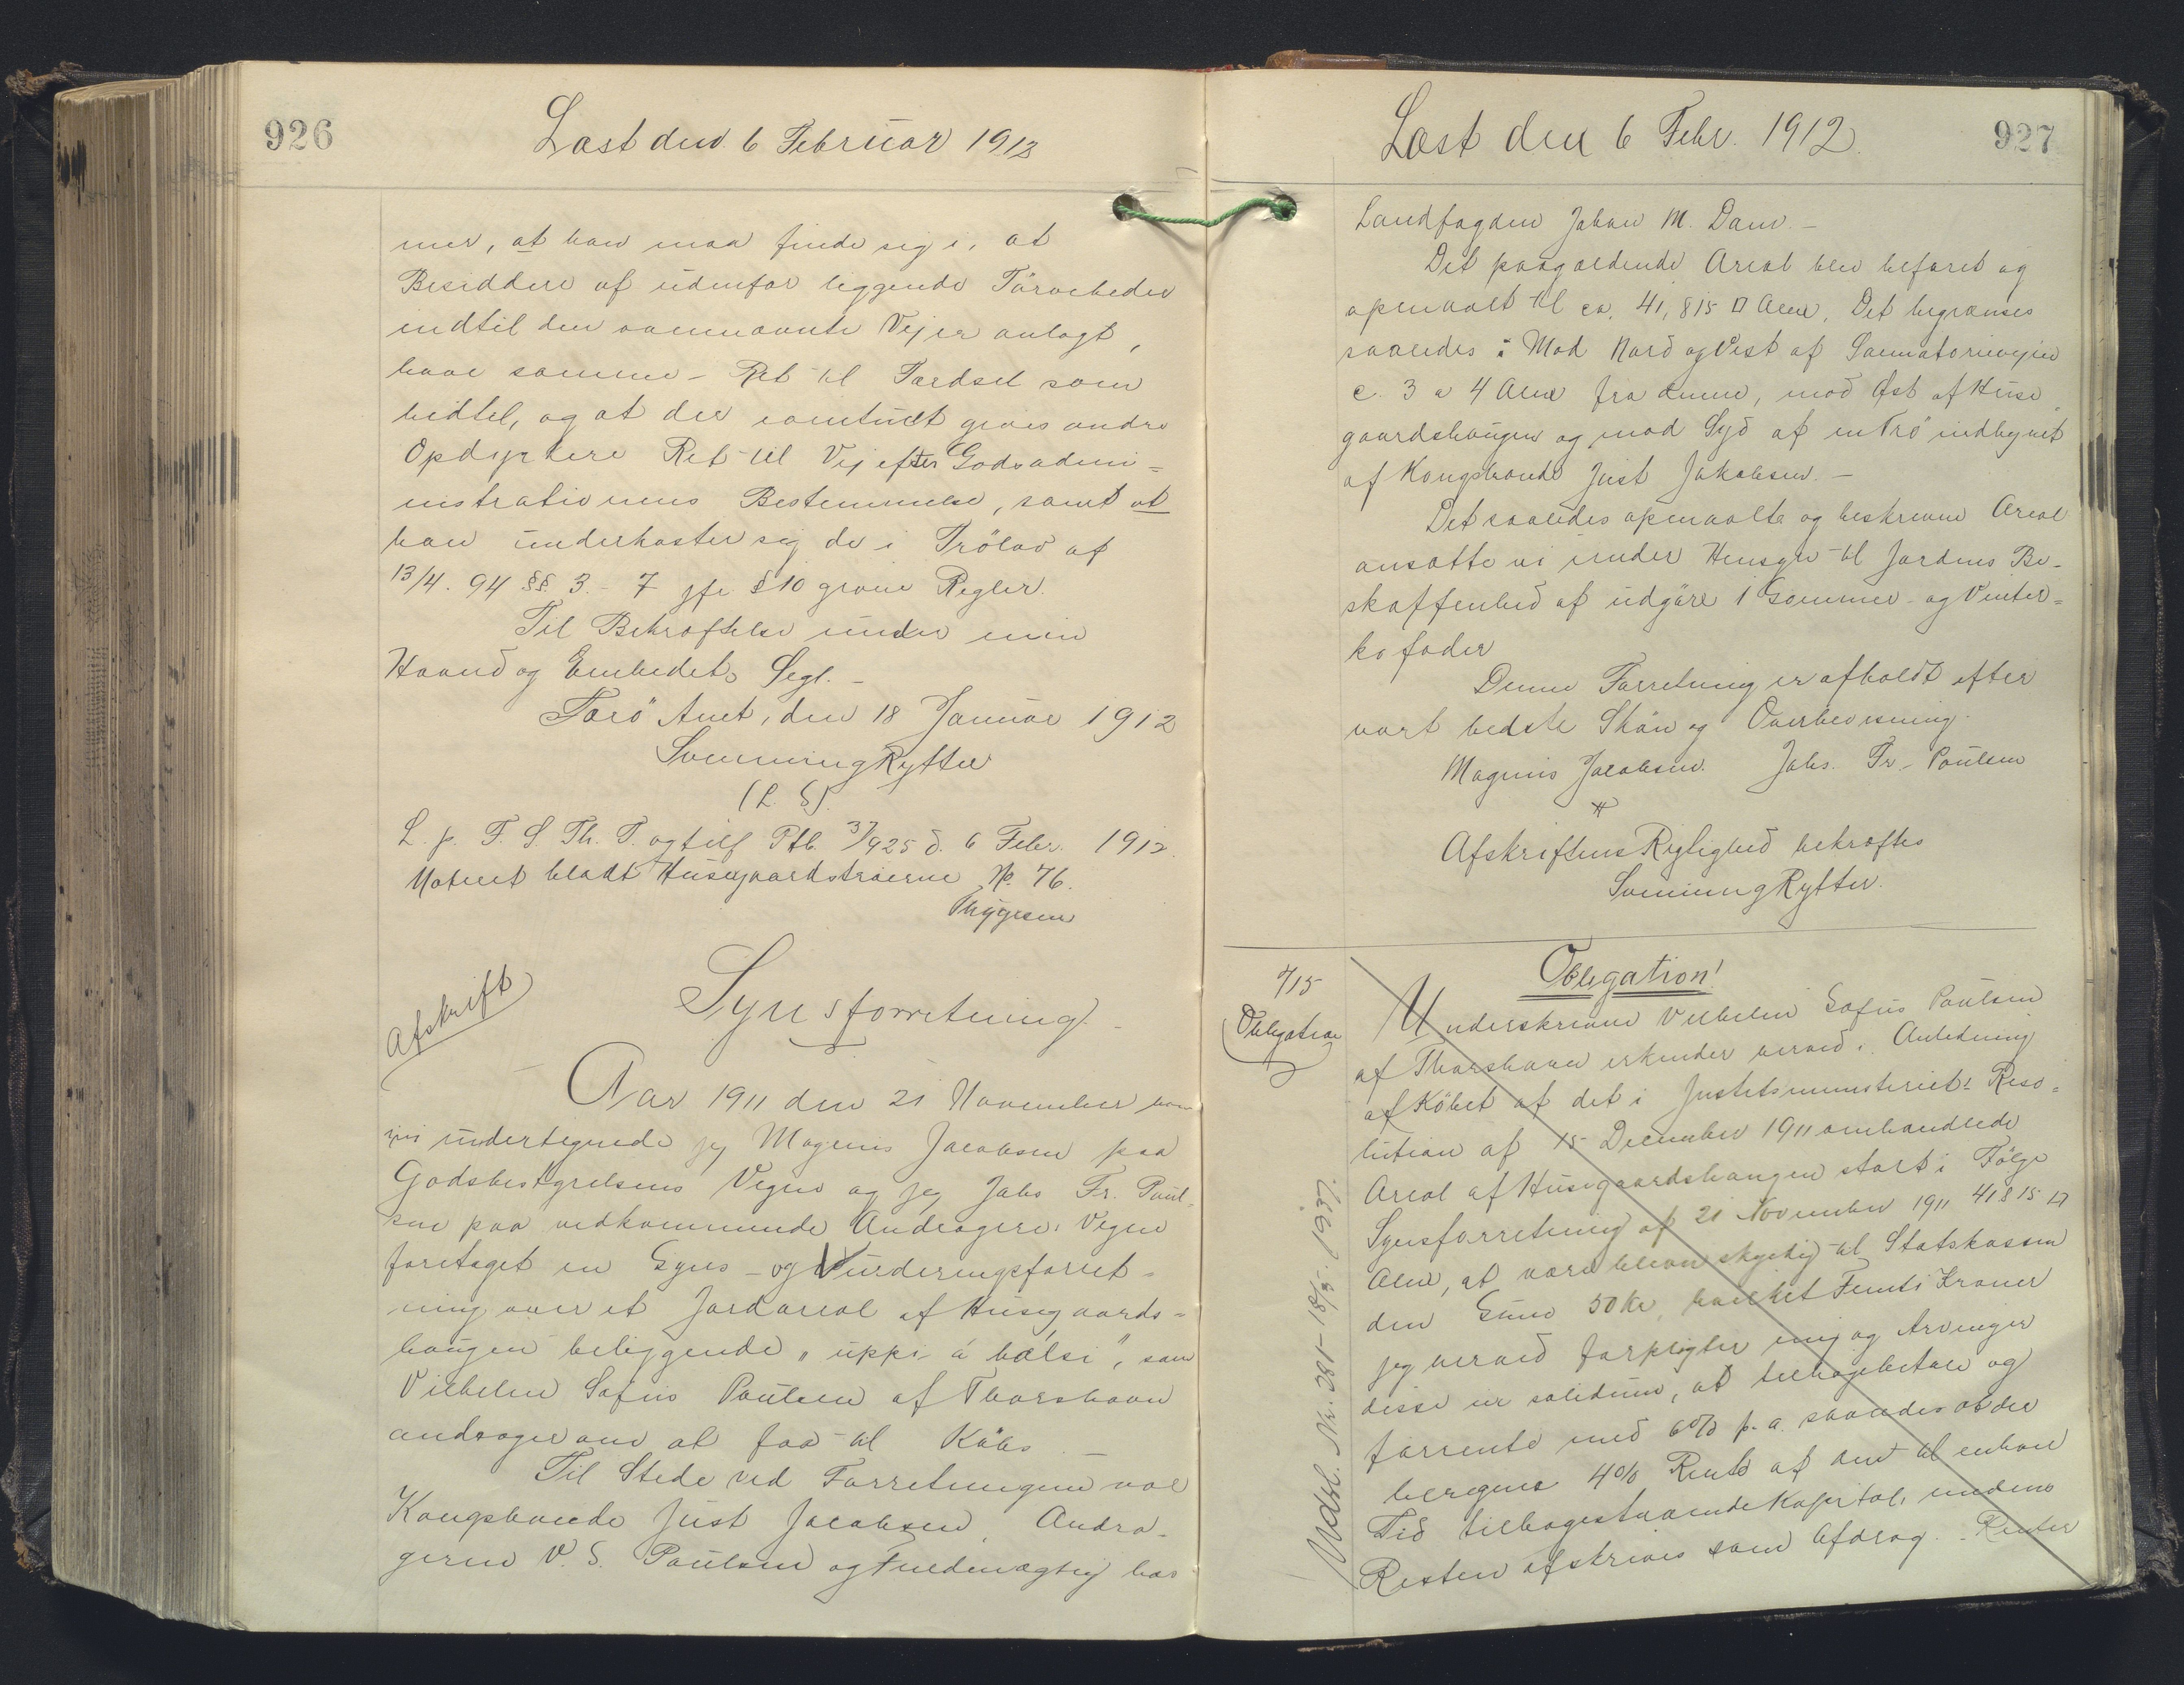 926
Læst den 6 Februar 1912
mer, at han maa finde sig i, at
Besiddere af udenfor liggende Törvebeder
indtil den ovennævnte Vej er anlagt,
have samme Ret til Færdsel som
hidtil, og at der eventuelt gives andre
Opdyrkere Ret til Vej efter Godsadmi=
nistrationens Bestemmelse, samt at
han underkaster sig de i Trölov af
13/4. 94 §§ 3. - 7 jfr § 10 givne Regler.
Til Bekræftelse under min
Haand og Embedets Segl. -
Færö Amt, den 18 Januar 1912
Svenning Rytter
(L. S).
L. p. F. S. Th. T. og tilf Ptb. 37/925 d. 6 Febr. 1912.
Noteret bladt Husegaardströerne No. 76.
Thygesen
Afskrift
Synsforretning. -
Aar 1911 den 21 November have
vi undertegnede jeg Magnus Jacobsen paa
Godsbestyrelsens Vegne og jeg Jobs Fr. Poul-
sen paa vedkommende Andragers Vegne
foretaget en Syns- og Vurderingsforret-
ning over et Jordareal af Husegaards=
haugen beliggende "uppi á hálsi", som
Vilhelm Sofus Poulsen af Thorshavn
andrager om at faa til Købs. -
Til Stede ved Forretningen var
Kongsbonde Just Jacobsen, Andra-
geren V. S. Poulsen og Fuldmægtig hos
927
Læst den 6 Febr. 1912.
Landfogden Johan M. Dam. -
Det paagældende Areal blev befaret og
opmaalt til ca. 41,815 □ Alen. Det begrænses
saaledes: Mod Nord og Vest af Sanatorievejen
c. 3 a 4 Alen fra denne, mod Øst af Huse
gaardshaugen og mod Syd af en Trö indhegnet
af Kongsbonde Just Jakobsen. -
Det saaledes opmaalte og beskrevne Areal
ansatte vi under Hensyn til Jordens Be-
skaffenhed at udgöre 1 Sommer- og Vinter=
kofoder
Denne Forretning er afholdt efter
vort bedste Skön og Overbevisning.
Magnus Jacobsen. Jobs. Fr. Poulsen
Afskriftens Rigtighed bekræftes
Svenning Rytter.
7/15
Obligation
Obligation!
Underskrevne Vilhelm Sofus Poulsen
af Thorshavn erkender herved i Anledning
af Köbet af det i Justitsministeriets Reso-
lution af 15 December 1911 omhandlede
Areal af Husegaardshaugen stort i Fölge
Synsforretning af 21 November 1911 41815 □
Alen, at være bleven skyldig til Statskassen
den Sum 50 Kr, hvilket Femti Kroner
jeg herved forpligter mig og Arvinger
disse in solidum, at tilbagebetale og
forrente med 6% p. a. saaledes at der
beregnes 4% Rente af den til enhver
Tid tilbagestaaende Kapital, medens
Resten afskrives som Afdrag. - Renter
Udsl. Nr. 281 - 18/3. 1937.